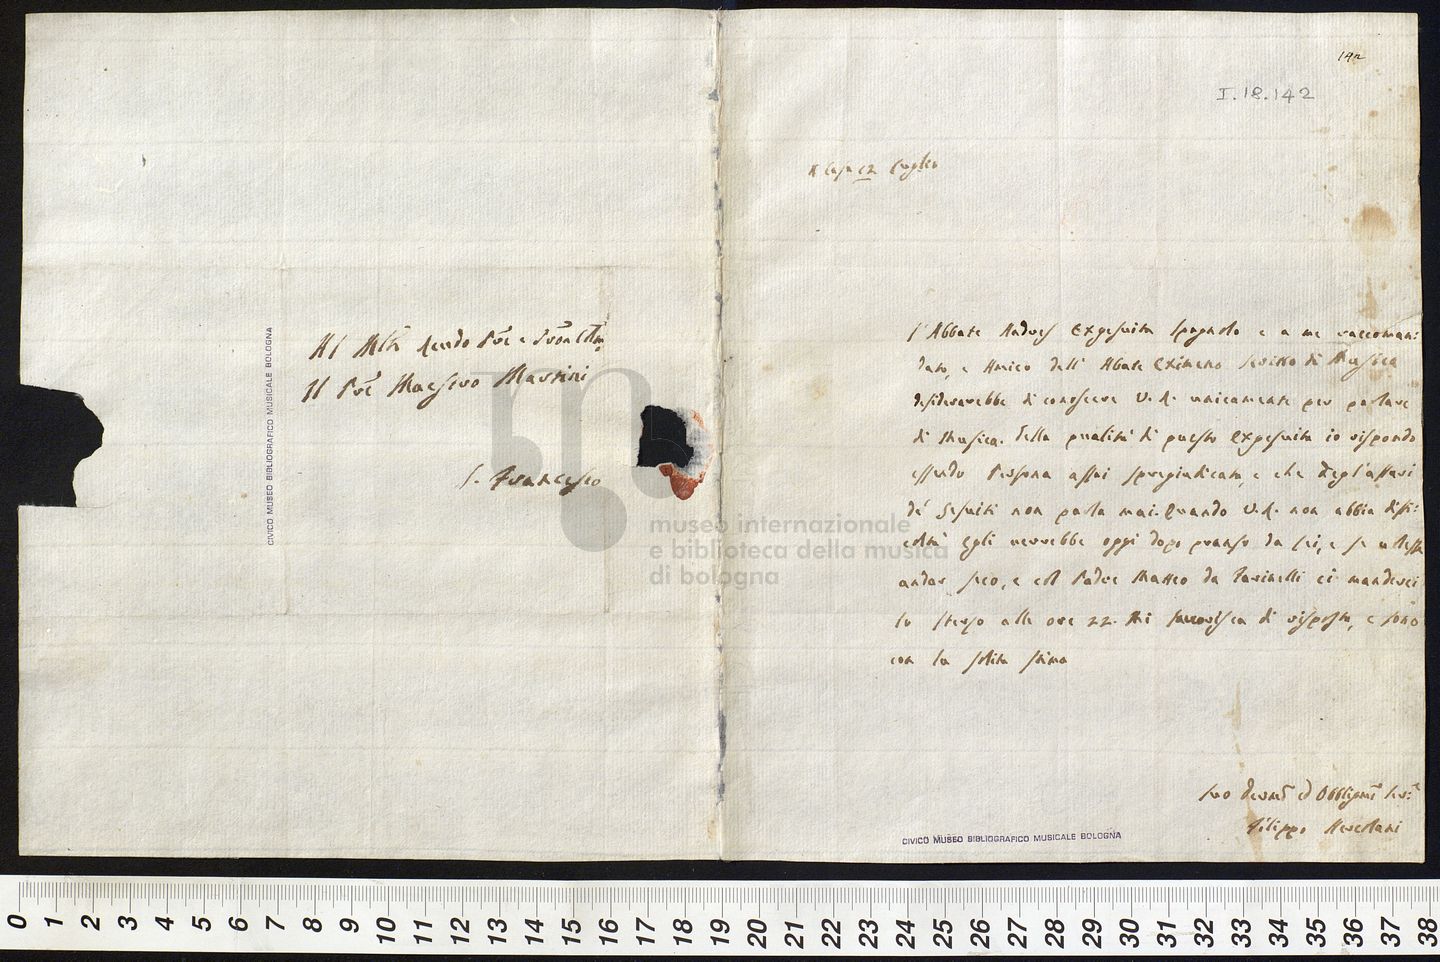 Al Mlt̃o Rendo Prẽ e Prõn
Il Prẽ Maestro Martini
S. Francesco
CIVICO MUSEO BIBLIOGRAFICO MUSICALE BOLOGNA
museo internazionale
e biblioteca della musica
di bologna
142
I.18.142
Casa 12 luglio
l'Abbate Andres Exgesuita Spagnolo e a me raccoman:
dato, e Amico dell'Abate Eximeno scritto di Musica
desidererebbe di conoscere V.R. unicamente per parlare
di Musica. Della qualità di questo Exgesuita io rispondo
essendo Persona assai spregiudicata, e che degl'affari
de' Gesuiti non parla mai. Quando V.R. non abbia diffi:
coltà Egli verrebbe oggi dopo pranso da lei, e se volesse
andar seco, e col Padre Matteo da Farinelli ci manderei
lo sterzo alle ore 22. Mi favorisca di risposta, e sono
con la solita stima
Suo Devmõ ed Obbligmõ Serr̃e
Filippo Hercolani
CIVICO MUSEO BIBLIOGRAFICO MUSICALE BOLOGNA
0 1 2 3 4 5 6 7 8 9 10 11 12 13 14 15 16 17 18 19 20 21 22 23 24 25 26 27 28 29 30 31 32 33 34 35 36 37 38